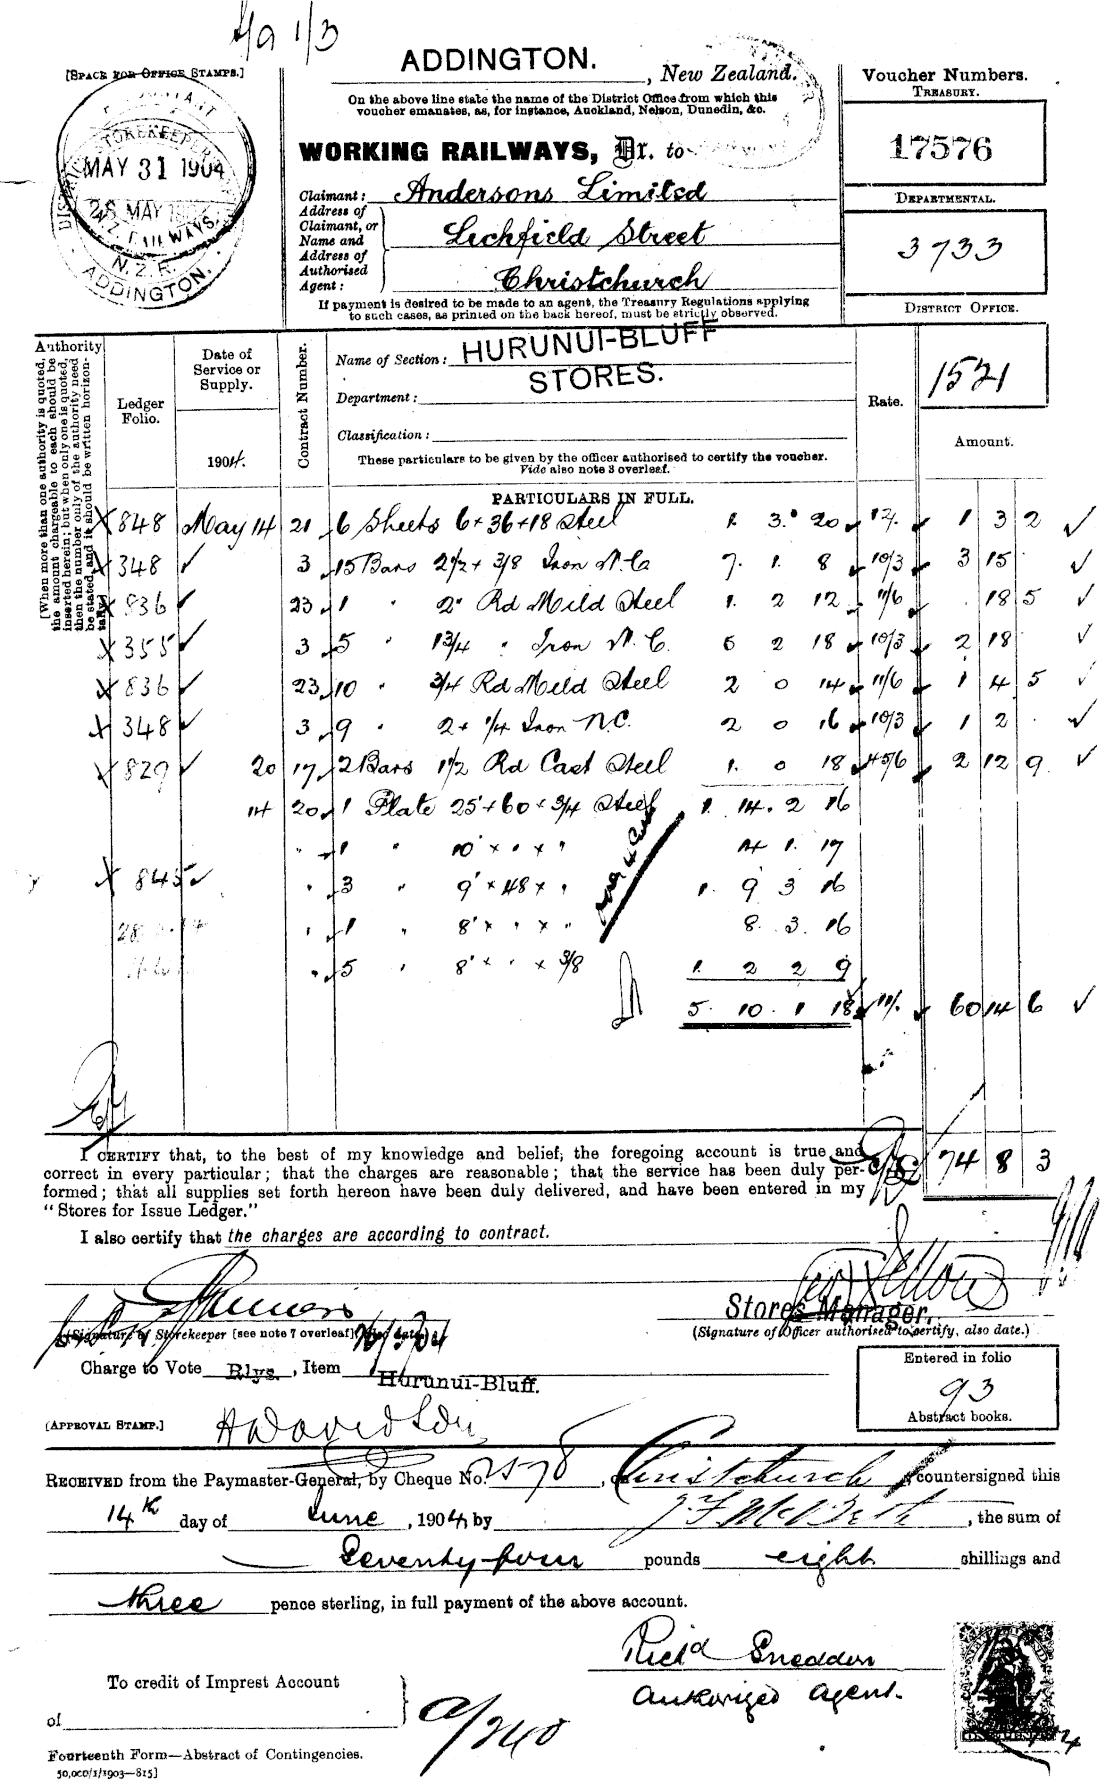 1/3
[SPACE FOR OFFICE STAMPS.]
ADDINGTON.
, New Zealand.
On the above line state the name of the District Office from which this
voucher emanates, as, for instance, Auckland, Nelson, Dunedin, &c.
STOREKEEPER
MAY 31 1904
28 MAY
N.Z. RAILWAYS.
N.Z.R.
ADDINGTON.
WORKING RAILWAYS, Dr. to
Claimant: Andersons Limited
Address of
Claimant, or
Name and
Address of
Authorised
Agent:
Lichfield Street
Christchurch
If payment is desired to be made to an agent, the Treasury Regulations applying
to such cases, as printed on the back hereof, must be strictly observed.
Voucher Numbers.
TREASURY.
17576
DEPARTMENTAL.
3733
DISTRICT OFFICE.
1521
Authority
[When more than one authority is quoted,
the amount chargeable to each should be
inserted herein; but when only one is quoted,
then the number only of the authority need
be stated, and it should be written horizon-
tally.]
Ledger
Folio.
Date of
Service or
Supply.
1904.
Contract Number.
Name of Section: HURUNUI-BLUFF
STORES.
Department:
Classification:
These particulars to be given by the officer authorised to certify the voucher.
Vide also note 3 overleaf.
Rate.
Amount.
PARTICULARS IN FULL.
848 May 14 21 6 Sheets 6 + 36 + 18 Steel 1. 3. 20 12/- 1 3 2
348 3 15 Bars 2½ + 3/8 Iron N.C 7. 1. 8 10/3 3 15
836 23 1 " 2" Rd Mild Steel 1. 2 12 11/6 . 18 5
355 3 5 " 1¾ " Iron N.C. 5 2 18 10/3 2 18
836 23 10 " ¾ Rd Mild Steel 2 0 14 11/6 1 4 5
348 3 9 " 2 + ¼ Iron N.C. 2 0 16 10/3 1 2 .
829 20 17 2 Bars 1½ Rd Cast Steel 1. 0 18 45/6 2 12 9
14 20 1 Plate 25' + 60 + ¾ Steel 1. 14. 2 16
" 1 " 10' × " × " 14 1. 17
845 " 3 " 9' × 48 × " 1. 9 3 16
" 1 " 8' × " × " 8. 3. 16
" 5 " 8' × " × 3/8 1. 2 2 9
5. 10. 1 18 11/- 60 14 6
74 8 3
I CERTIFY that, to the best of my knowledge and belief, the foregoing account is true and
correct in every particular; that the charges are reasonable; that the service has been duly per-
formed; that all supplies set forth hereon have been duly delivered, and have been entered in my
"Stores for Issue Ledger."
I also certify that the charges are according to contract.
Stores Manager.
(Signature of Storekeeper [see note 7 overleaf]
(Signature of Officer authorised to certify, also date.)
Charge to Vote Rlys. , Item Hurunui-Bluff.
Entered in folio
93
Abstract books.
[APPROVAL STAMP.]
RECEIVED from the Paymaster-General, by Cheque No. 2578, Christchurch countersigned this
14th day of June , 1904, by , the sum of
Seventy-four pounds eight shillings and
three pence sterling, in full payment of the above account.
Richd Sneddon
Authorized Agent.
To credit of Imprest Account
of
a/240
Fourteenth Form—Abstract of Contingencies.
50,000/1/1903—815]